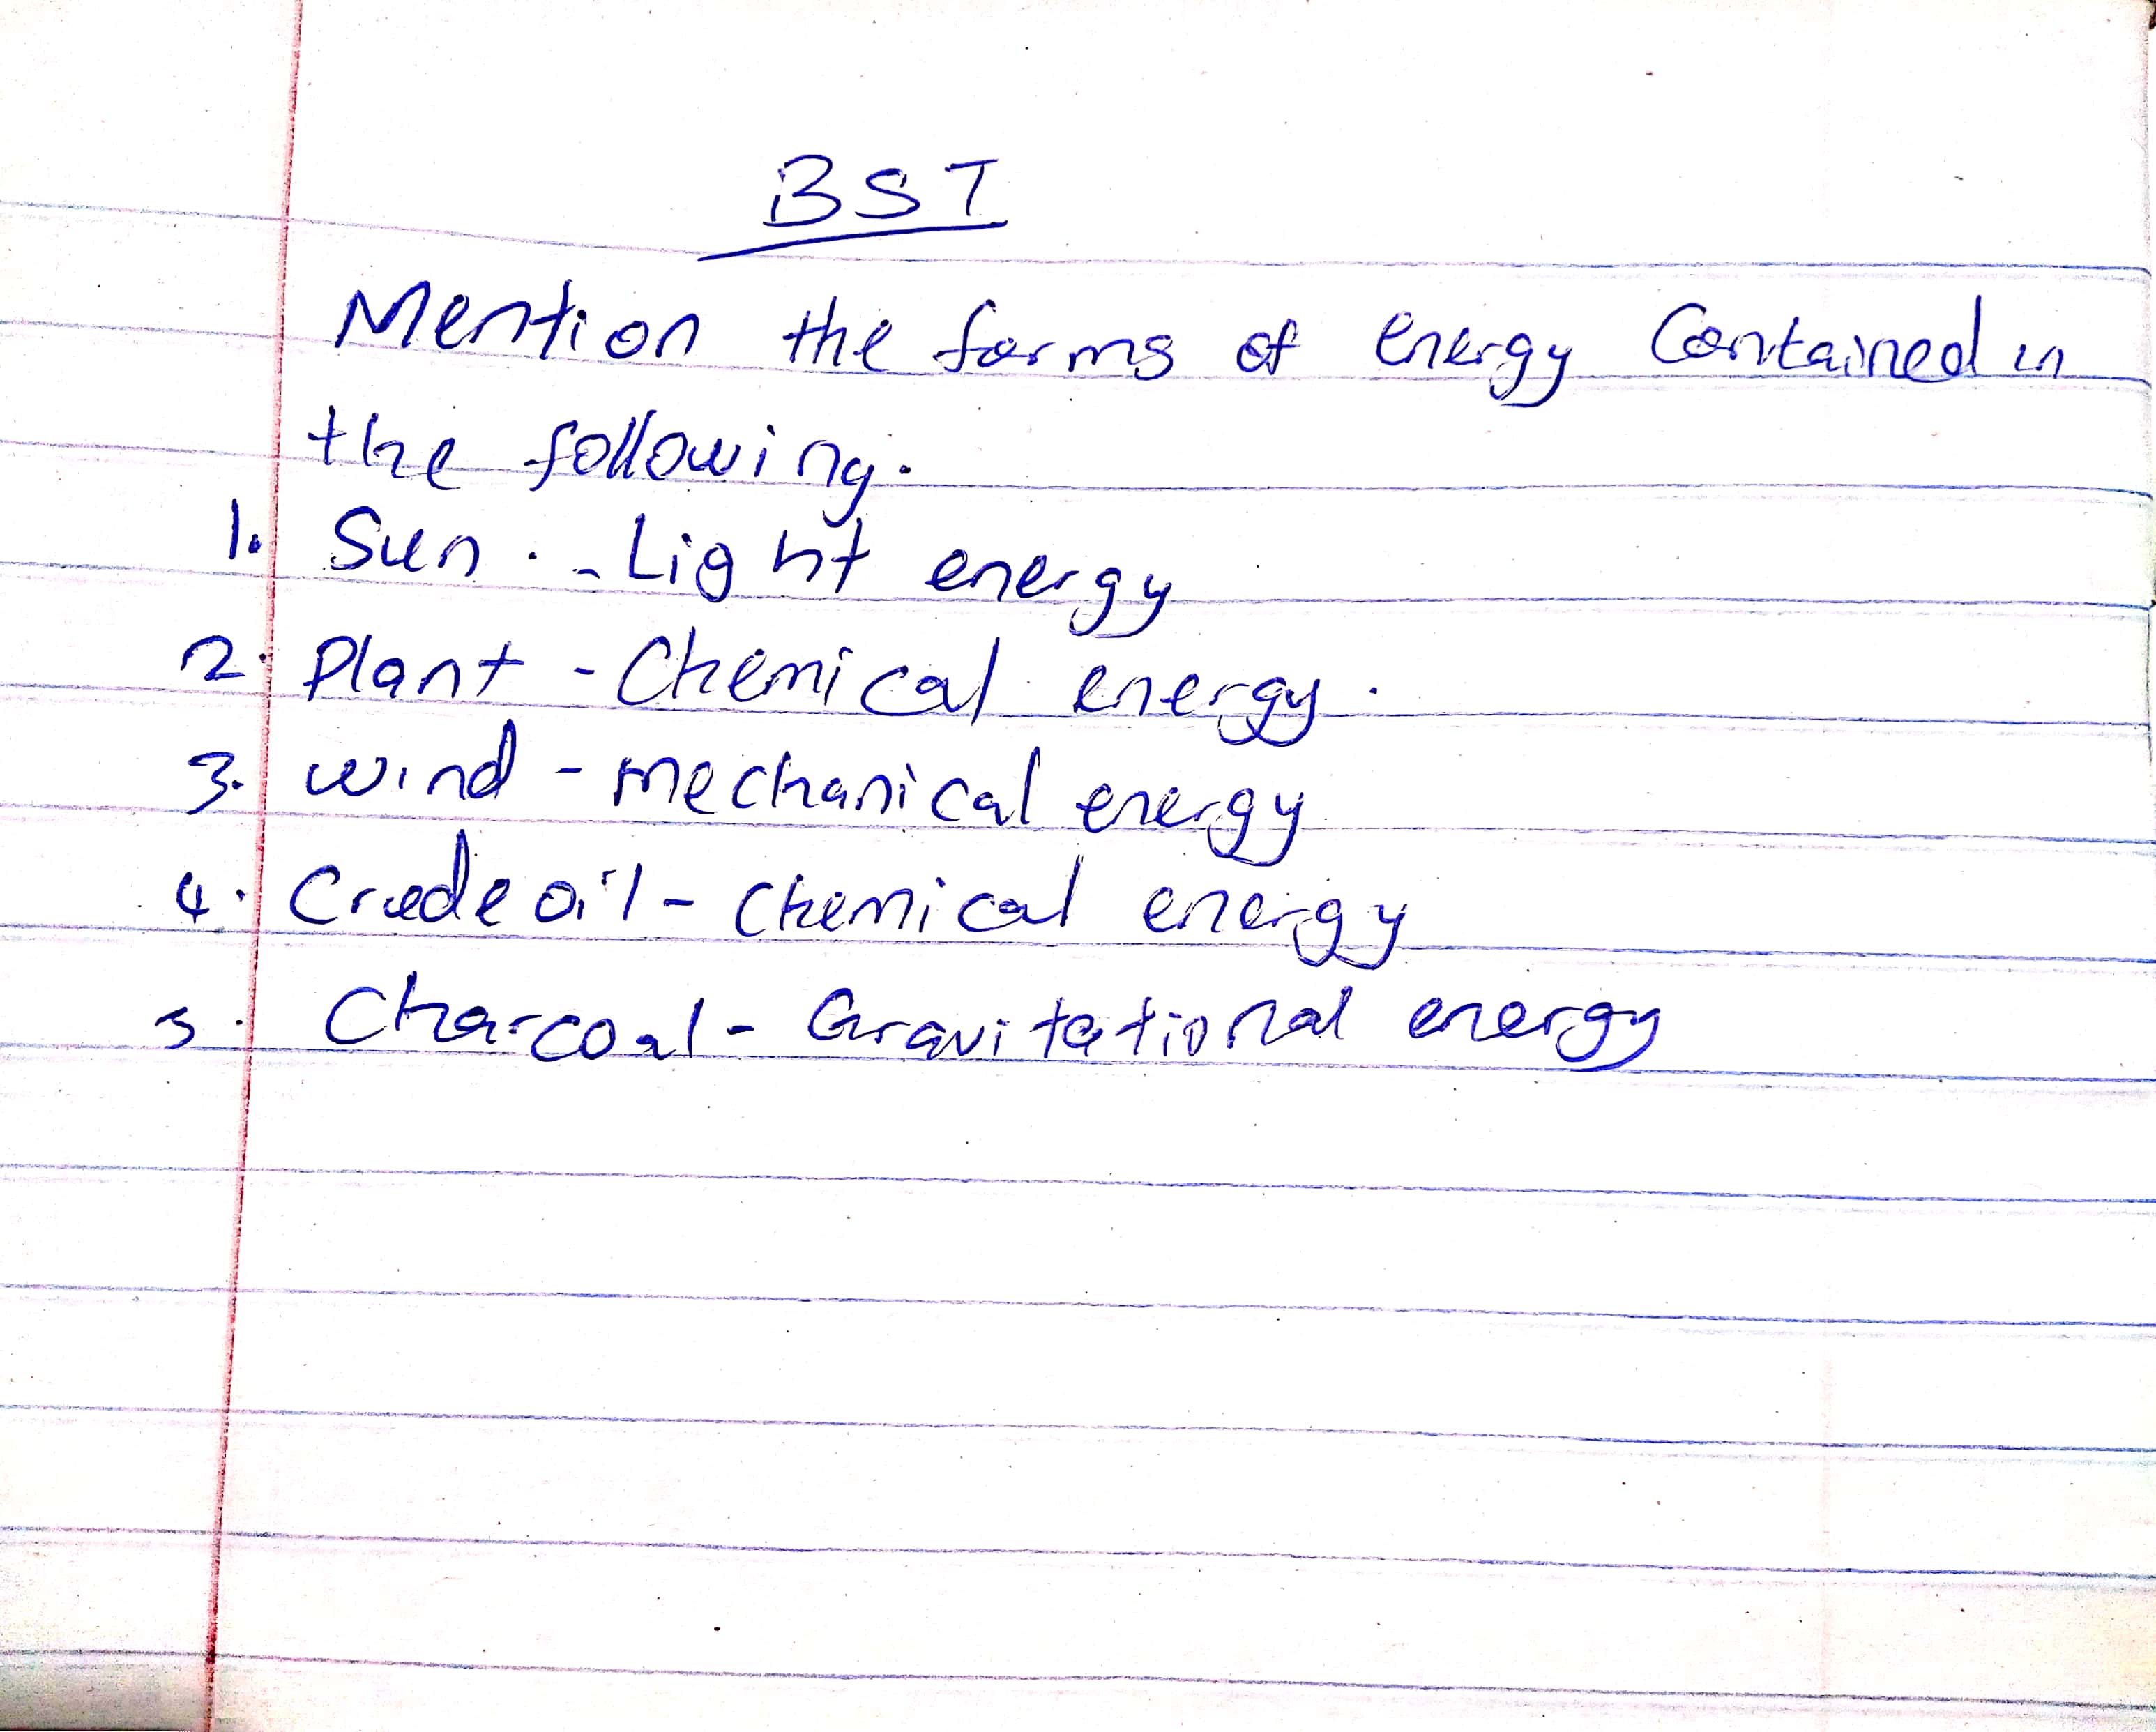 BST
Mention the forms of energy Contained in
the following.
1. Sun. - Light energy
2. Plant - Chemical energy.
3. wind - mechanical energy
4. Crude oil - chemical energy
5. Charcoal - Gravitational energy